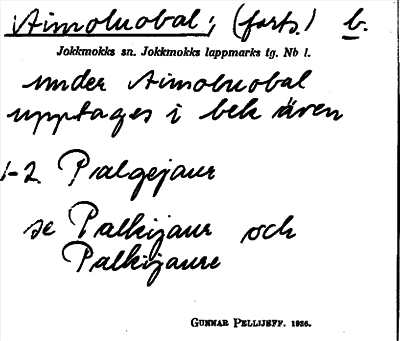 Aimoluobal; (forts.) b.
Jokkmokks sn. Jokkmokks lappmarks tg. Nb l.
under Aimoluobal
upptages i bek även
1-2 Palgejaur
se Palkijaur och
Palkijaure
GUNNAR PELLIJEFF. 1926.